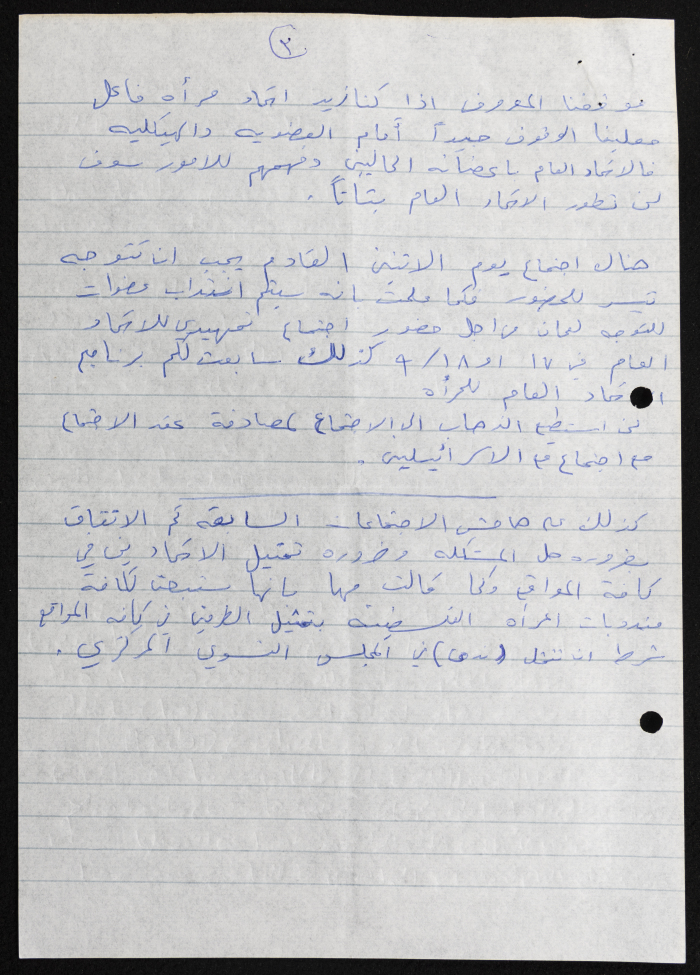 ٣
موقفنا المعروف اذا كنا نريد اتحاد مرأه فاعل
فعلينا الوقوف جيداً أمام العضويه والهيكليه
فالاتحاد العام باعضائه الحاليين وفهمهم للامور سوف
لن نطور الاتحاد العام بتاتاً .
هناك اجتماع يوم الاثنين القادم يجب ان تتوجه
تيسير للحضور فكما علمت بانه سيتم انتداب عضوات
للتوجه لعمان من اجل حضور اجتماع تمهيدي للاتحاد
العام في ١٧ او ١٨/٩ كذلك سابعث لكم برنامج
الاتحاد العام للمرأه
لن استطيع الذهاب الى الاجتماع لمصادفة عقد الاجتماع
مع اجتماع مع الاسرائيليين .
كذلك على هامش الاجتماعات السابقه تم الاتفاق
بضروره حل المشكله وضروره تمثيل الاتحاد في
كافة المواقع وكما قالت مها بانها ستبعث لكافة
مندوبات المرأه الفلسطينيه بتمثيل الطرفين في كافه المواقع
شرط ان تتمثل () في المجلس النسوي المركزي .